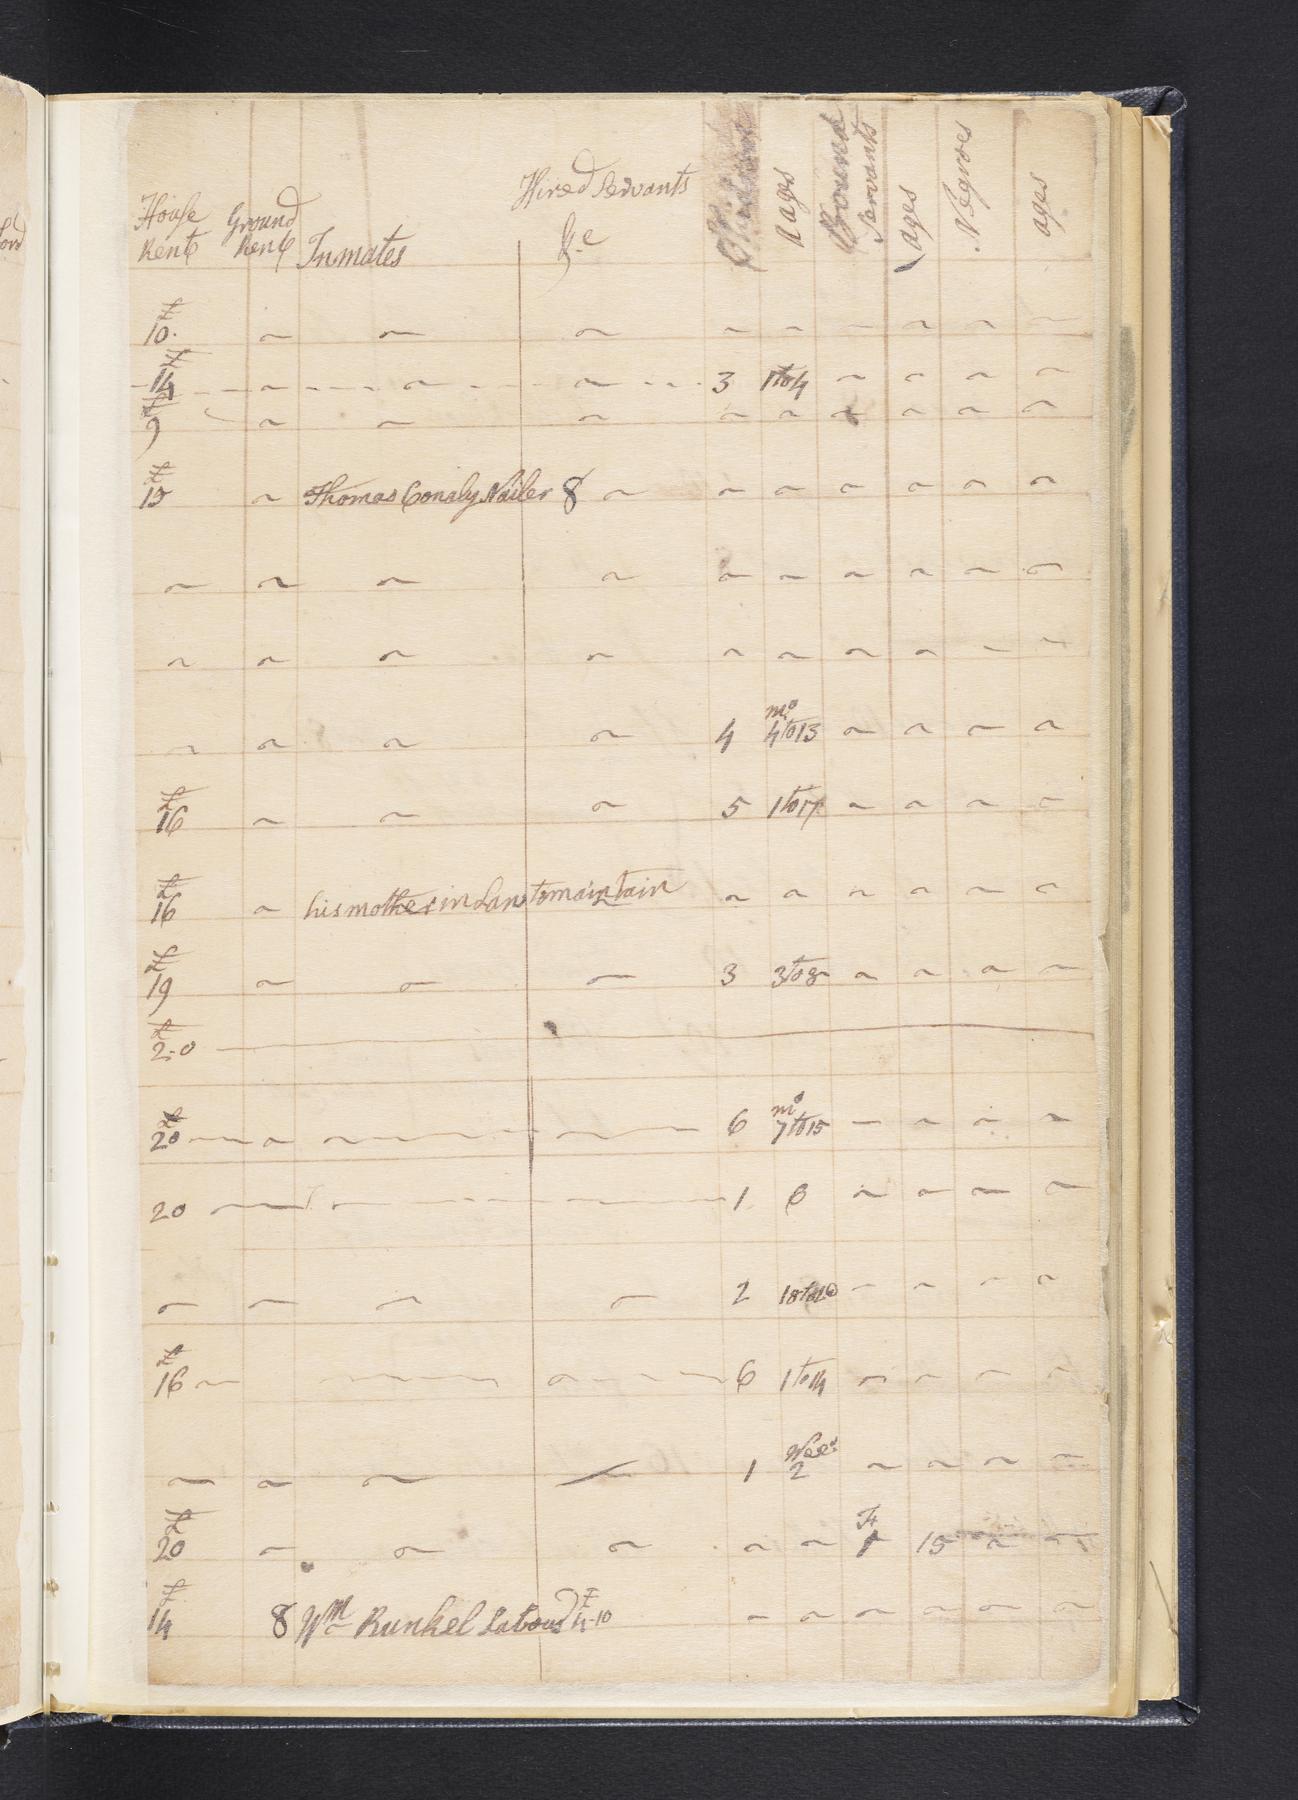 House Rent Ground Rent Inmates Hired Servants &c Children Aages Bound Servants ages Negroes ages
£ 10. ~ ~ ~ ~ ~ ~ ~ ~ ~
£ 14 ~ ~ ~ 3 1 to 4 ~ ~ ~ ~
£ 9 ~ ~ ~ ~ ~ ~ ~ ~ ~
£ 15 ~ Thomas Conaly Nailer 8 ~ ~ ~ ~ ~ ~ ~
~ ~ ~ ~ ~ ~ ~ ~ ~ ~
~ ~ ~ ~ ~ ~ ~ ~ ~ ~
~ ~ ~ ~ 4 mo 4 to 13 ~ ~ ~ ~
£ 16 ~ ~ ~ 5 1 to 17 ~ ~ ~ ~
£ 16 ~ his mother in Law to maintain ~ ~ ~ ~ ~ ~
£ 19 ~ ~ ~ 3 3 to 8 ~ ~ ~ ~
£ 2-0
£ 20 ~ ~ ~ 6 mo 7 to 15 ~ ~ ~ ~
20 ~ ~ ~ 1 6 ~ ~ ~ ~
~ ~ ~ ~ 2 18 to 20 ~ ~ ~ ~
£ 16 ~ ~ ~ 6 1 to 14 ~ ~ ~ ~
~ ~ ~ ~ 1 2 ~ ~ ~ ~
£ 20 ~ ~ ~ ~ ~ 1 15 ~ ~
£ 14 8 Wm Runkel Labour £ 4-10 ~ ~ ~ ~ ~ ~